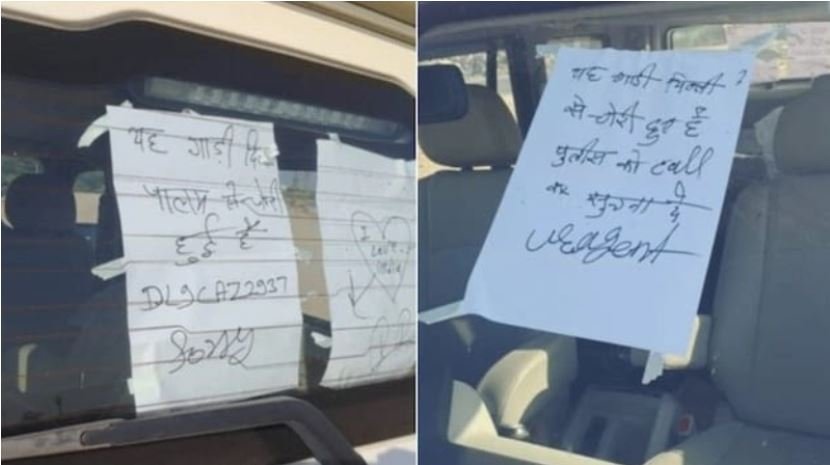 यह गाड़ी
पालम से चोरी
हुई है
DL9CAZ2937
Sorry
I
Love
India
यह गाड़ी दिल्ली
से चोरी हुई है
पुलीस को call
कर सुचना दे
Ureagent